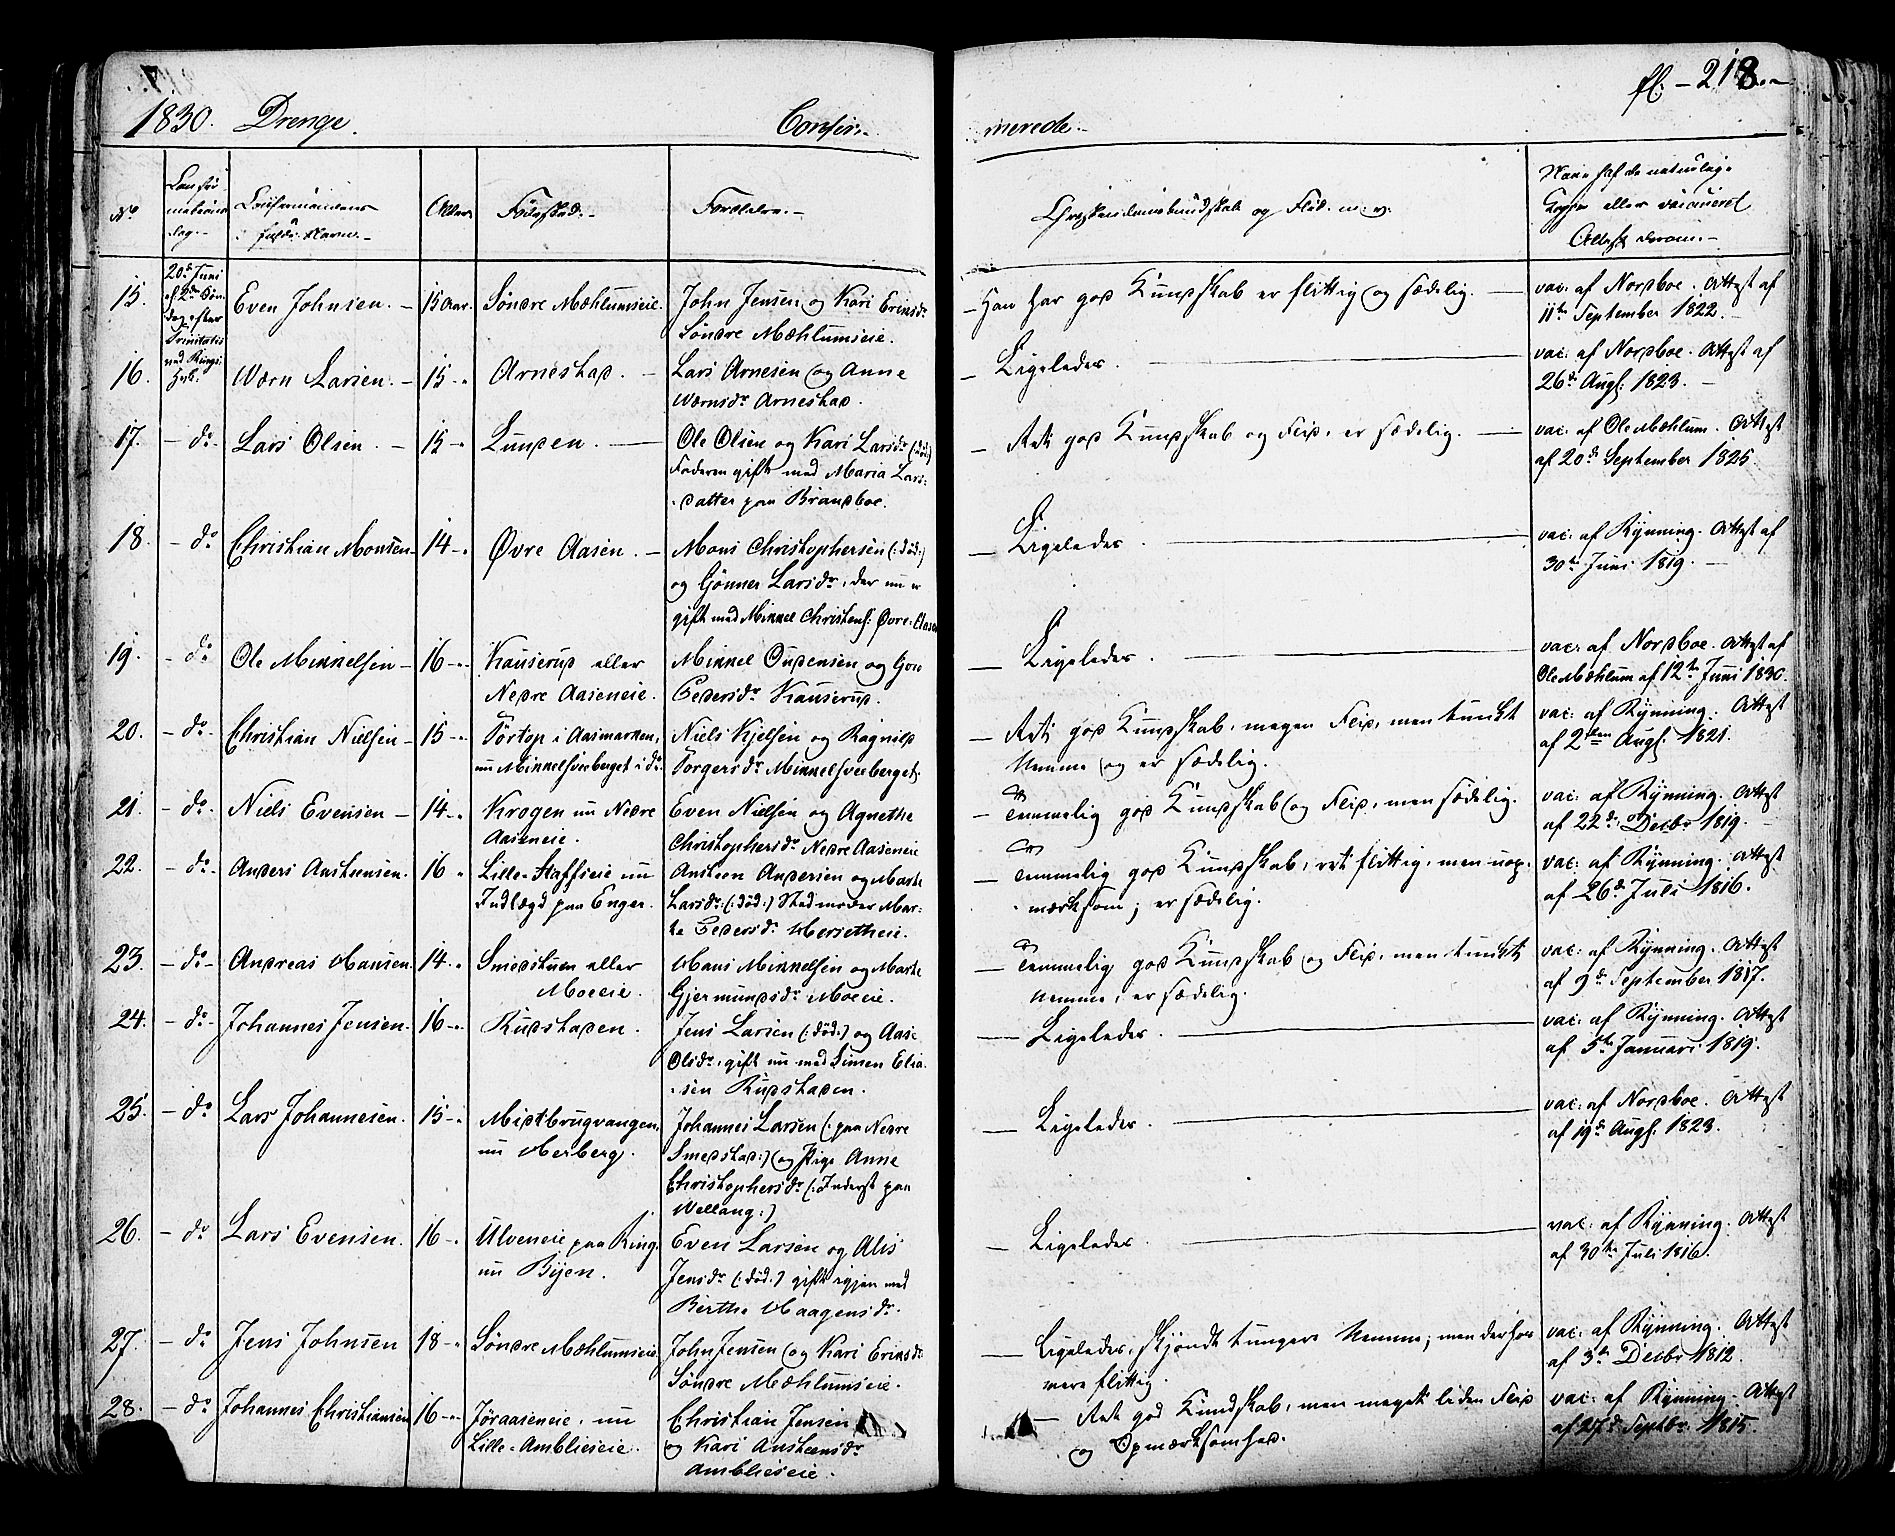 fl: – 218
1830. Drenge. Confir-
merede.
No
Confir-
mations
dag.
Confirmandens
fulde Navn.
Alder
Fødested.
Forældre.
Christendomskundskab og Flid. m: v:
Navn paa de naturlige
Kopper eller vaccineret
Attest derom.
15. 20de Juni
af 2den Søn
dag efter
Trinitatis
ved Rings:
Hvb:
Even Johnsen. 15 Aar. Søndre Mæhlumseie. John Jensen og Kari Erinsdr
Søndre Mæhlumseie.
Han har god Kundskab er flittig og sædelig.
vac: af Nordboe. Attest af
11te September 1822.
16. Wærn Larsen. 15 Arnestad. Lars Arnesen og Anne
Wærnsdr Arnestad.
Ligeledes.
vac: af Nordboe. Attest af
26de Augs: 1823.
17. do Lars Olsen. 15 Lunden. Ole Olsen og Kari Larsdr (:død:)
Faderen gift med Maria Lars:
datter paa Brandboe.
Ret god Kundskab og Flid, er sædelig.
vac: af Ole Mæhlum. Attest
af 20de September 1825.
18. do Christian Monsen 14 Øvre Aasen. Mons Christophersen (:død:)
og Gønner Larsdr, der nu er
gift med Minnel Christens: Øvre-Aasen
Ligeledes.
vac: af Rynning. Attest af
30te Juni 1819.
19. do Ole Minnelsen 16 Kauserud eller
Nedre Aaseneie.
Minnel Oudensen og Gou
Pedersdr Kauserud.
Ligeledes.
vac: af Nordboe. Attest af
Ole Mæhlum af 12te Juni 1830.
20. do Christian Nielsen 15 Tørtop i Aasmarken,
nu Minnelsveeberget i do
Niels Kjelsen og Ragnild
Torgersdr Minnelsveeberget.
Ret god Kundskab, megen Flid, men tungt
Nemme og er sædelig.
vac: af Rynning. Attest
af 2den Augs: 1821.
21. do Niels Evensen 14 Krogen nu Nedre
Aaseneie.
Even Nielsen og Agnethe
Christophersdr Nedre Aaseneie
Temmelig god Kundskab og Flid, men sædelig.
vac: af Rynning. Attest
af 22de Decbr 1819.
22. do Anders Austensen. 16 Lille-Staffseie nu
Indlægd paa Enger.
Austen Andersen og Marthe
Larsdr (:død:) Stedmoder Mar-
te Pedersdr Hersetheie.
Temmelig god Kundskab, ret flittig, men uop-
mærksom; er sædelig.
vac: af Rynning. Attest
af 26de Juli 1816.
23. do Andreas Hansen. 14 Smedstuen eller
Moeeie.
Hans Minnelsen og Marthe
Gjermundsdr Moeeie.
Temmelig god Kundskab og Flid, men tungt
Nemme, er sædelig.
vac: af Rynning. Attest
af 9de September 1817.
24. do Johannes Jensen. 16 Rudstaden. Jens Larsen (:død:) og Aase
Olsdr, gift nu med Simen Elia-
sen Rudstaden.
Ligeledes.
vac: af Rynning. Attest
af 5te Januari 1819.
25. do Lars Johannesen. 15 Mistbrugvangen
nu Herberg.
Johannes Larsen (:paa Nedre
Smedstad:) og Pige Anne
Christophersdr (:Inderst paa
Wellang:)
Ligeledes.
vac: af Nordboe. Attest
af 19de Augs: 1823.
26. do Lars Evensen. 16 Ulveneie paa Ring.
nu Byen.
Even Larsen og Alis
Jensdr (:død:) gift igjen med
Berthe Haagensdr.
Ligeledes.
vac: af Rynning. Attest
af 30te Juli 1816.
27. do Jens Johnsen 18 Søndre Mæhlumseie John Jensen og Kari Erinsdr
Søndre Mæhlumseie.
Ligeledes, skjøndt tungere Nemme; men derfor
mere flittig.
vac: af Rynning. Attest
af 3de Decbr 1812.
28. do Johannes Christiansen 16 Jøraaseneie, nu
Lille-Amblieeie.
Christian Jensen
og Kari Austensdr
Amblieseie.
Ret god Kundskab, men meget liden Flid
og Opmærksomhed.
vac: af Rynning. Attest
af 27de Septbr 1815.